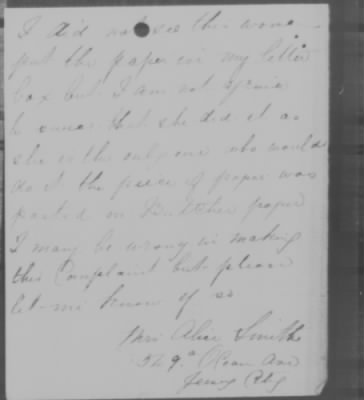 I did not see this woman
put the paper in my letter
box but I am not afraid
to swear that she did it as
she is the only one who would
do it the piece of paper was
pasted on Butcher paper
I may be wrong in making
this Complaint but please
let me know if so
Mrs Alice Smith
Ocean Ave
Jersey City